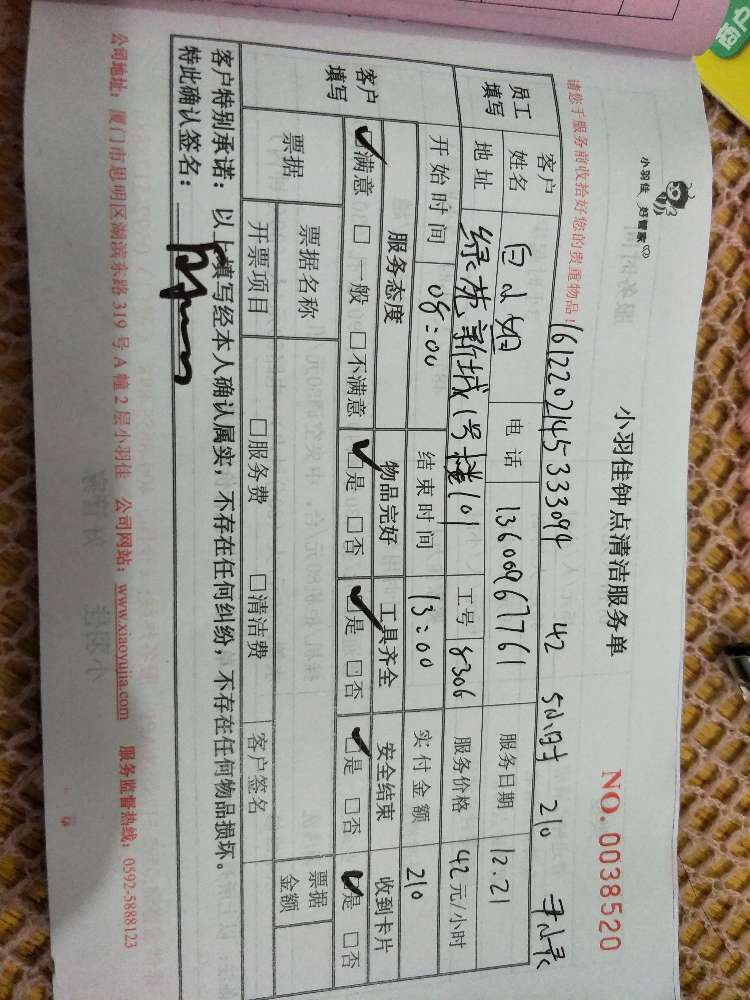 小羽佳 好管家
小羽佳钟点清洁服务单
NO. 0038520
请您于服务前收拾好您的贵重物品!
161220214533094 42 5小时 210
员工填写
客户姓名 白小姐 电话 13600967761 服务日期 12.21
地址 绿苑新城1号楼101 工号 8306 服务价格 42元/小时
开始时间 08:00 结束时间 13:00 实付金额 210
客户填写
服务态度 物品完好 工具齐全 安全结束 收到卡片
☑满意 □一般 □不满意 ☑是 □否 ☑是 □否 ☑是 □否 ☑是 □否
票据 票据名称 票据金额
开票项目 □服务费 □清洁费 客户签名
客户特别承诺:以上填写经本人确认属实,不存在任何纠纷,不存在任何物品损坏。
特此确认签名:
公司地址:厦门市思明区湖滨东路319号A幢2层小羽佳 公司网站:www.xiaoyujia.com 服务监督热线:0592-5888123